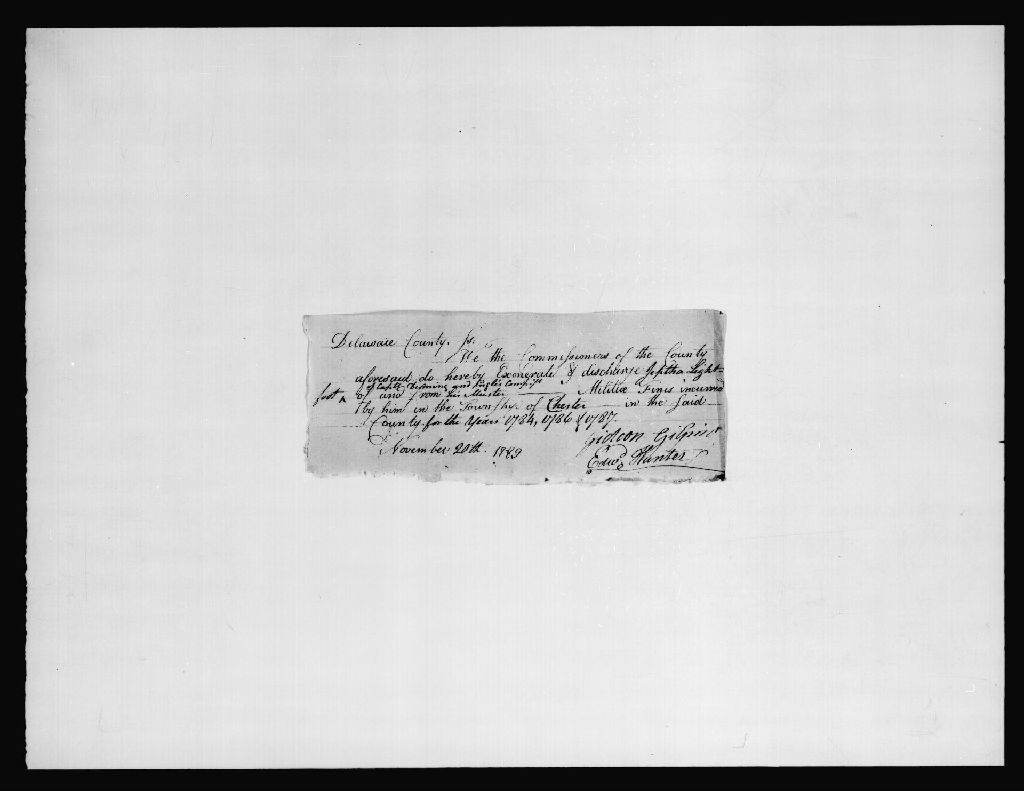 Delaware County, ss.
We the Commissioners of the County
aforesaid do hereby Exonerate & discharge Jephtha Light-
of Captn and Companys
foot ^ of and from his Muster Militia Fines incurred
by him in the Township of Chester in the said
County for the Years 1784, 1786 & 1787
November 20th. 1789
Gideon Gilpin
Edwd Hunter